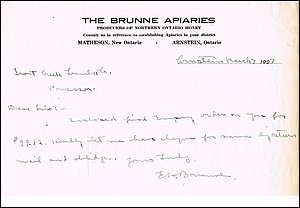 THE BRUNNE APIARIES
PRODUCERS OF NORTHERN ONTARIO HONEY
Consult us in reference to establishing Apiaries in your district
MATHESON, New Ontario - ARNSTEIN, Ontario
Arnstein March 7 1927
Trout Creek Lumber Co.
Powassan
Dear Sirs:-
Enclosed find Express order on you for
$99.82. Kindly let me have cheque for same by return
mail and oblige. Yours Truly,
Brunne.